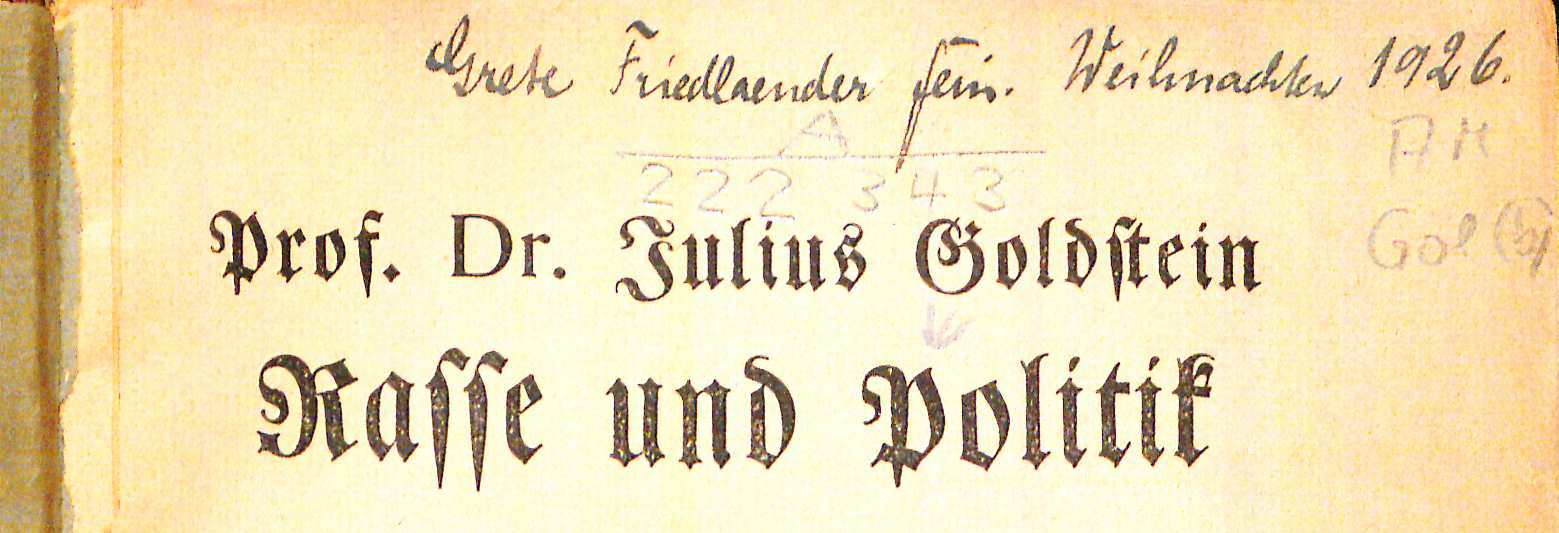 Grete Friedlaender Weihnachten 1926.
A
AM
222 343
Prof. Dr. Julius Goldſtein
Gol
Raſſe und Politik